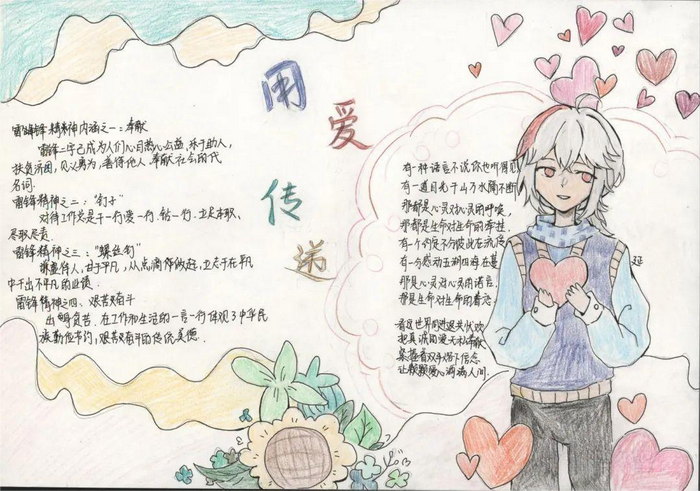 用爱传递
雷锋精神内涵之一：奉献
雷锋二字已成为人们心目热心公益，乐于助人，
扶贫济困，见义勇为，善待他人，奉献社会的代
名词．
雷锋精神之二："钉子"
对待工作总是干一行爱一行，钻一行，立足本职、
尽职尽责．
雷锋精神之三："螺丝钉"
待人，甘于平凡，从点滴做起，立志于在平
中干出不平凡的业绩．
雷锋精神之四、艰苦奋斗
在工作和生活的一言一行体现了中华民
族勤俭节约，艰苦奋斗的传统美德．
有一种语言不说你也听得见
有一道目光千山万水隔不断
那都是心灵对心灵的呼唤，
那都是生命对生命的牵挂．
有一个约定不分彼此在流
有一句感动五湖四海在蔓
延
那是心灵对心灵的诺言，
那是生命对生命的
看这世界
把真诚的爱无私奉献
双手 下信念
让 爱心洒满人间．